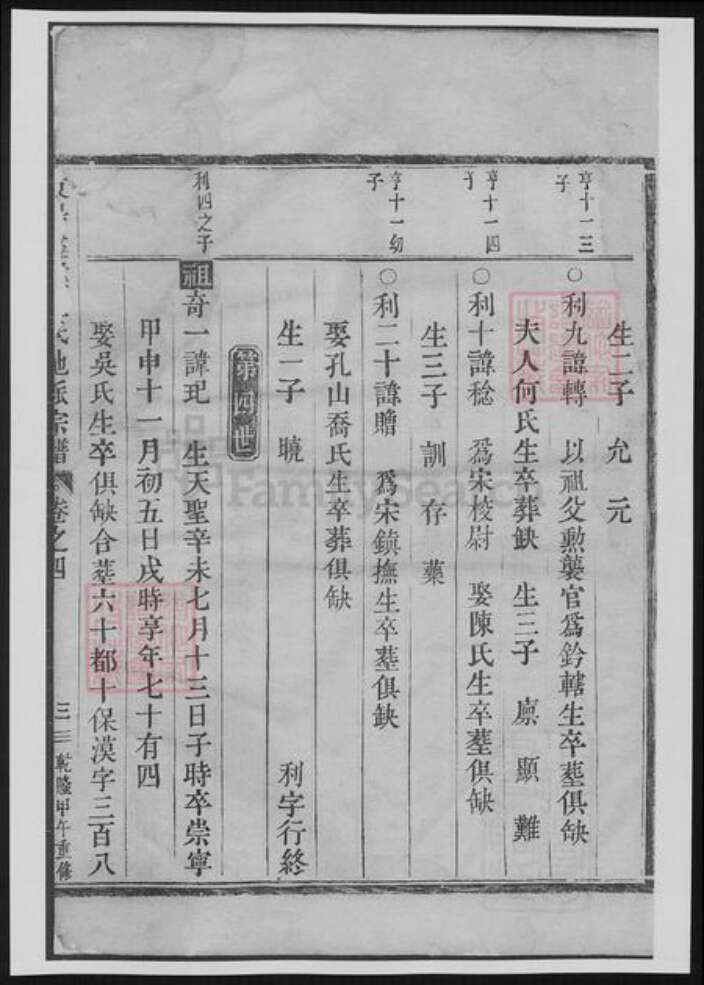 生二子 允 元
亨十一三子
○利九諱轉 以祖父勲襲官爲鈐轄生卒塟俱缺
夫人何氏生卒葬缺 生三子 原 顯 難
亨十一四子
○利十諱稔 爲宋校尉 娶陳氏生卒塟俱缺
生三子 訓 存 藥
亨十一幼子
○利二十諱贈 爲宋鎮撫生卒塟俱缺
娶孔山喬氏生卒葬俱缺
生一子 曉 利字行終
第四世
利四之子
祖奇一諱玘 生天聖辛未七月十三日子時卒崇寧
甲申十一月初五日戌時享年七十有四
娶吳氏生卒俱缺合塟六十都十保漠字三百八
氏地派宗譜 卷之四 三 乾隆甲午重修
FamilySearch